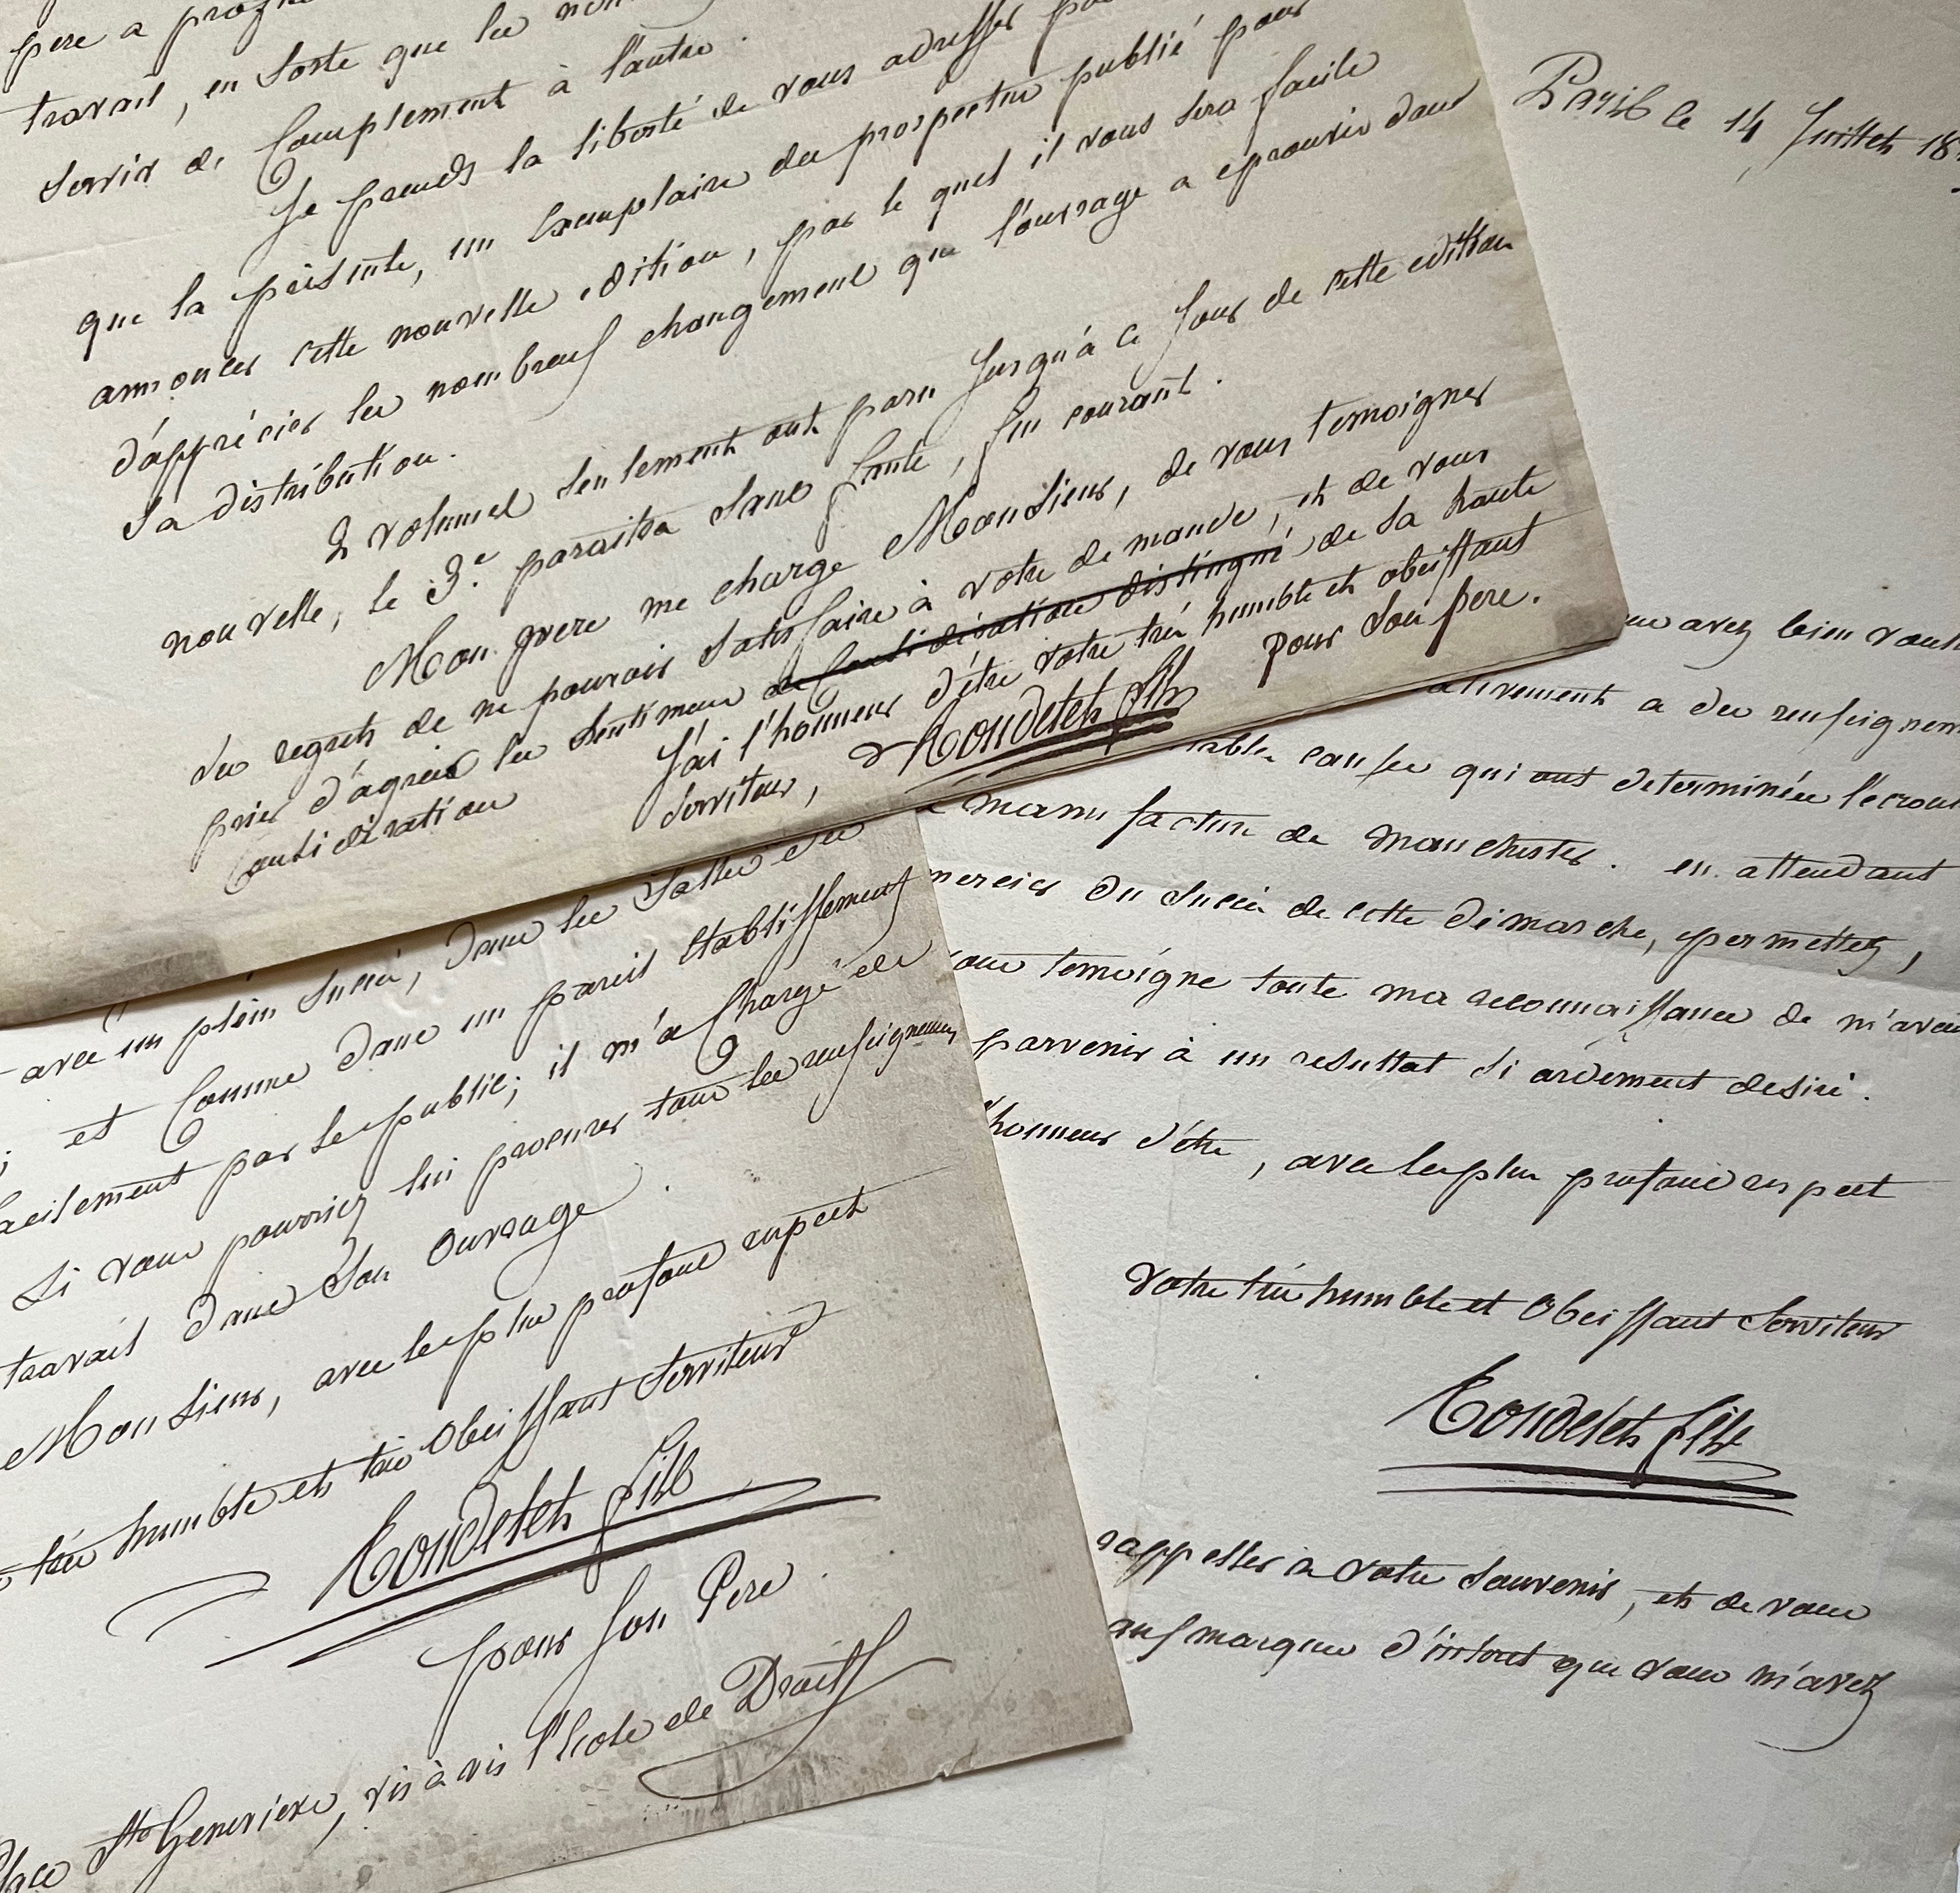 pere a
travail, en sorte que les
servir de Complement à l'autre.
Je prends la liberté de vous adresser
que la présente, un Exemplaire du prospectus publié pour
annoncer cette nouvelle edition, par le quel il vous sera facile
d'apprécier les nombreux changement que l'ouvrage a eprouvés dans
sa distribution.
2 volumes seulement ont paru jusqu'à ce jour de cette edition
nouvelle, le 3.e paraitra sans faute, fin courant.
Mon pere me charge Monsieur, de vous temoigner
les regrets de ne pouvoir satisfaire à votre demande, et de vous
prier d'agréer les sentimens de Considération distingué de sa haute
Considération
J'ai l'honneur d'être votre très humble et obeissant
serviteur, Rondelet fils pour son pere.
Paris le 14 Juillet 18
avez bien voulu
a des renseignem
causes qui ont determinées l'ecroul
manufacture de Manchester. en attendant
du succès de cette démarche, permettez,
temoigne toute ma reconnaissance de m'avoir
parvenir à un resultat si ardement desiré.
l'honneur d'être, avec le plus profond respect
Votre très humble et Obeissant Serviteur
Rondelet fils
rappeller à votre souvenir, et de vous
aux marques d'interet que vous m'avez
avec un plein succès, dans les salles des
et Comme dans un pareil Etablissement
facilement par le public; il m'a Chargé de
si vous pourriez lui procurer tous les renseignemens
travail dans son Ouvrage.
Monsieur, avec le plus profond respect
très humble et très Obeissant Serviteur
Rondelet fils
pour son Pere
Place Ste Genevieve, vis à vis l'Ecole de Droit